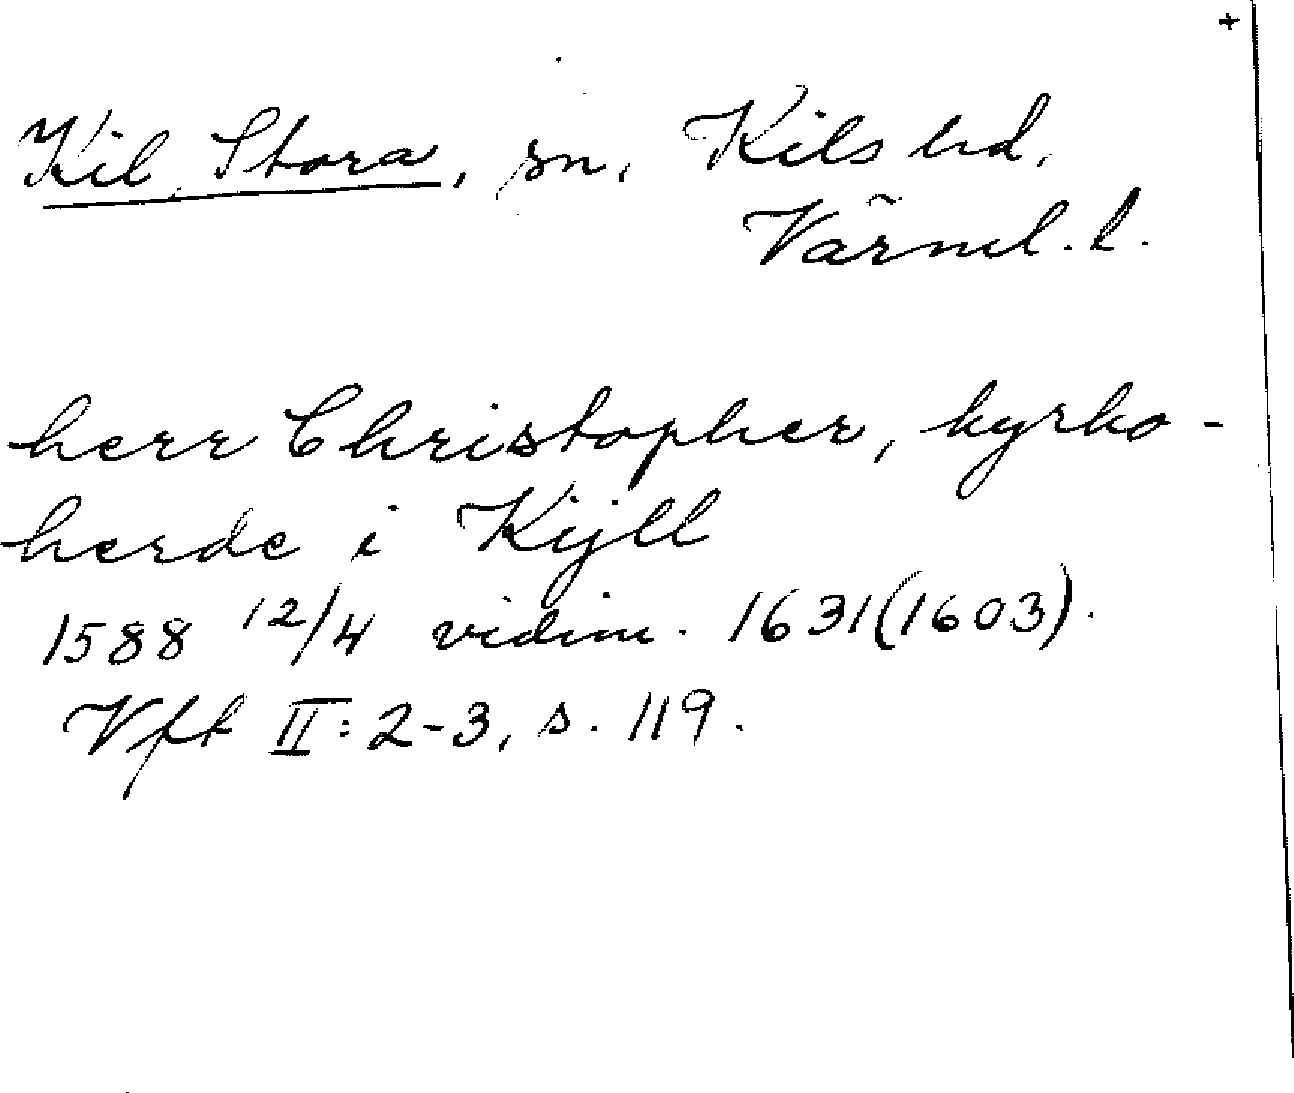 +
Kil, Stora, sn, Kils hd,
Värml. l.
herr Christopher, kyrko-
herde i Kijll
1588 12/4 vidim. 1631(1603).
Vft II: 2-3, s. 119.